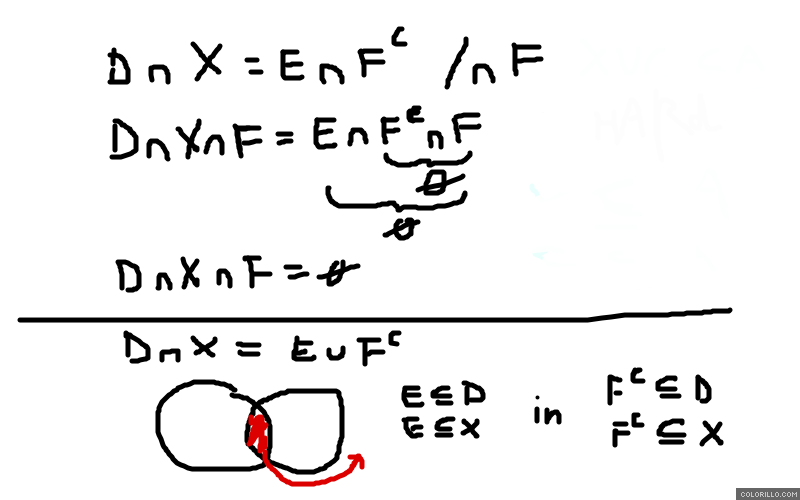 D∩X = E∩Fᶜ /∩F
D∩X∩F = E∩Fᶜ∩F
∅
∅
D∩X∩F = ∅
D∩X = E∪Fᶜ
E⊆D in Fᶜ⊆D
E⊆X Fᶜ⊆X
COLORILLO.COM